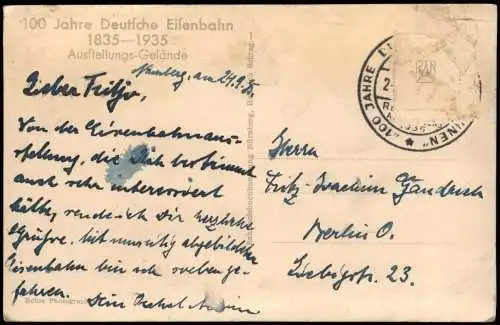 100 Jahre Deutsche Eisenbahn
1835—1935
Ausstellungs-Gelände
Nürnberg, am 24.9.35.
Lieber Fritzo,
Von der Eisenbahnaus-
stellung, die Dich bestimmt
auch sehr interessiert
hätte, sende ich Dir herzliche
Grüße. Mit umseitig abgebildeter
Eisenbahn bin ich soeben ge-
fahren. Dein Onkel
"100 JAHRE
Herrn
Fritz-Joachim Gandrich
Berlin O.
Liebigstr. 23.